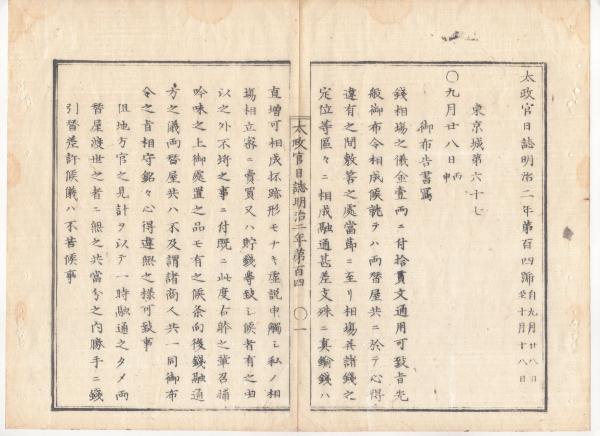 太政官日誌明治二年第百四號 自九月廿八日 至十月十八日
東京城第六十七
〇九月廿八日 丙申
御布告書寫
錢相塲之儀金壹兩ニ付拾貫文通用可致旨先
般御布令相成候就テハ兩替屋共ニ於テ心得
違有之間敷筈之處當節ニ至リ相塲其諸錢之
定位等區々ニ相成融通甚差支殊ニ眞鍮錢ハ
太政官日誌明治二年第百四 〇一
直增可相成抔跡形モナキ虛説申觸シ私ノ相
塲相立窃ニ賣買又ハ貯錢等致シ候者有之由
以之外不埓之事ニ付既ニ此度右躰之輩召捕
吟味之上御處置之品モ有之候条向後錢融通
方之儀兩替屋共ハ不及謂諸商人共一同御布
令之旨相守銘々心得違無之樣可致事
但地方官之見計ヲ以テ一時融通之タメ兩
替屋渡世之者ニ無之共當分之内勝手ニ錢
引替差許候儀ハ不苦候事